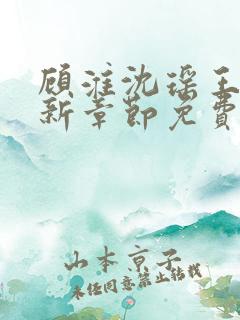 顾淮沈瑶王
新章節免費
山本京子
未经同意禁止转载